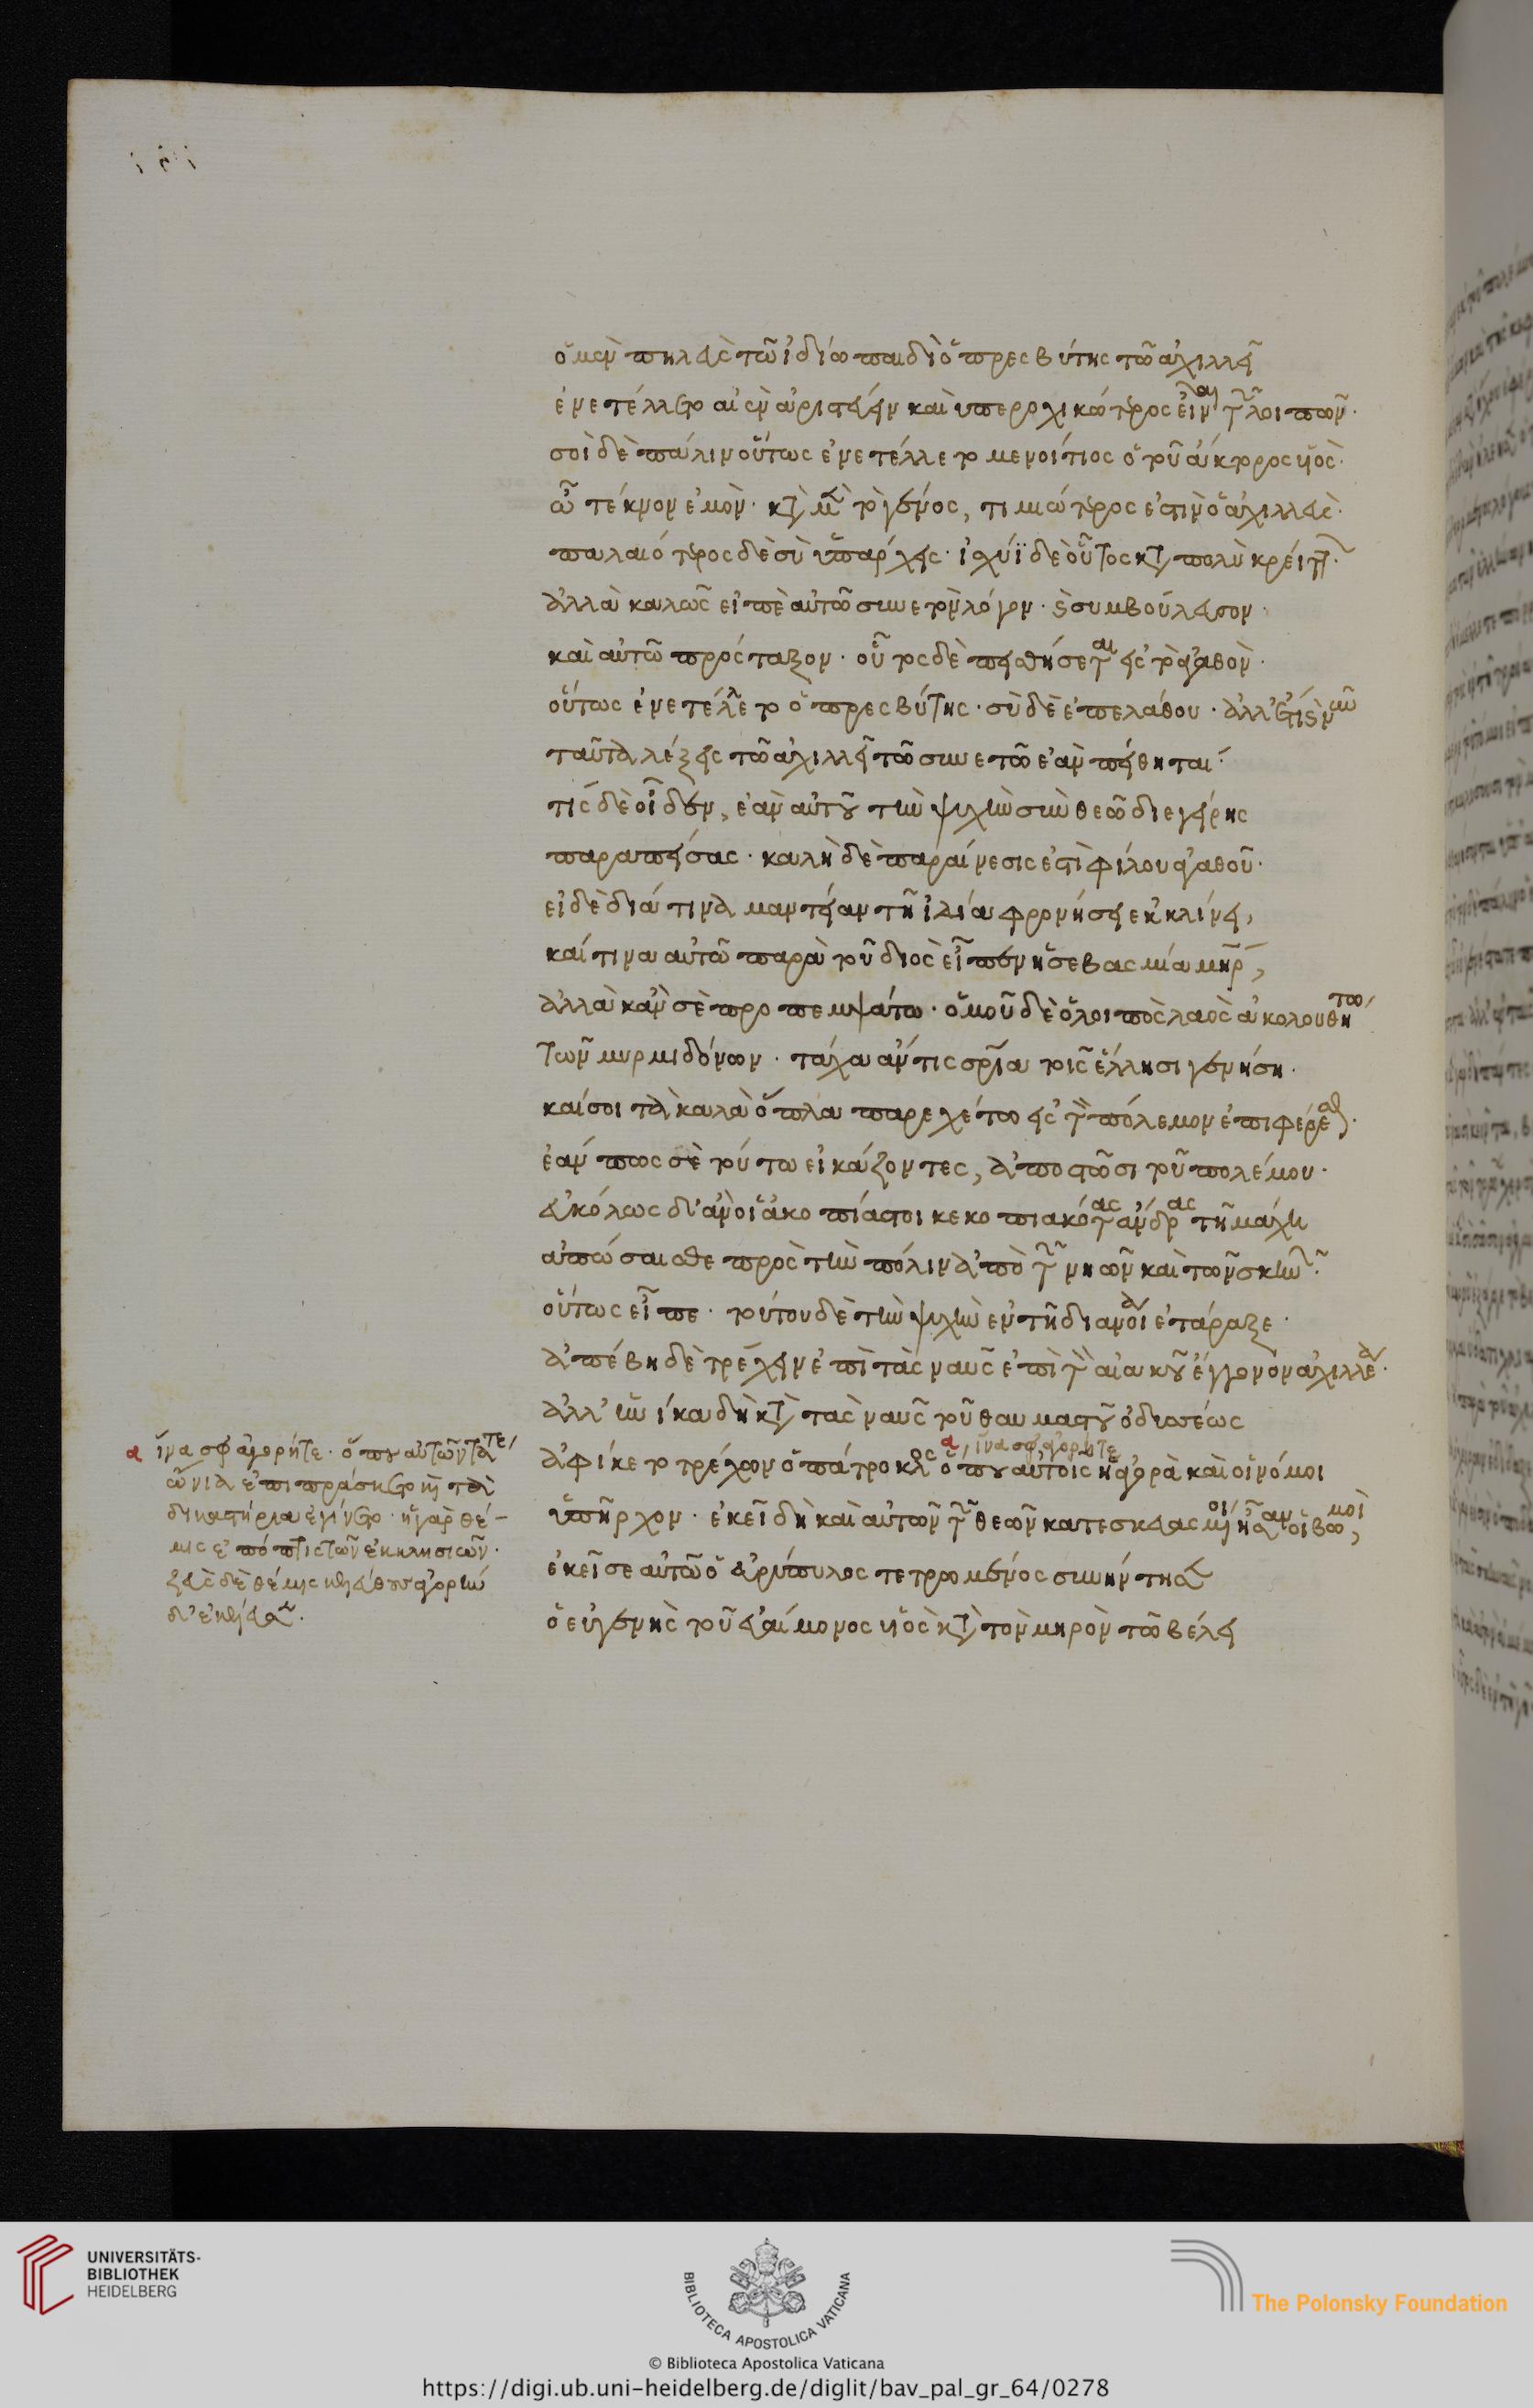 ὁ μὲν πηλεὺς τῶ ἰδίω παιδὶ ὁ πρεσβύτης τῶ ἀχιλλεῖ
ἐνετέλλετο αἰὲν ἀριστεύειν καὶ ὑπεροχικώτερος εἶναι τῶν λοιπῶν·
σοὶ δὲ πάλιν οὕτως ἐνετέλλετο μενοίτιος ὁ τοῦ ἄκτορος υἱός·
ὦ τέκνον ἐμόν· κατὰ μὲν τὸ γένος, τιμιώτερος ἐστὶν ὁ ἀχιλλεύς·
παλαιότερος δὲ σὺ ὑπάρχεις· ἰσχύϊ δὲ οὗτος κατὰ πολὺ κρείττων·
ἀλλὰ καλῶς εἰπὲ αὐτῶ συνετὸν λόγον· καὶ συμβούλευσον·
καὶ αὐτῶ πρόσταξον· οὗτος δὲ πεισθήσεται εἰς τὸ ἀγαθόν·
οὕτως ἐνετέλλετο ὁ πρεσβύτης· σὺ δὲ ἐπελάθου· ἀλλ' ἔτι καὶ νῦν
ταῦτα λέξεις τῶ ἀχιλλεῖ τῶ συνετῶ ἐὰν πείθηται·
τίς δὲ οἶδεν, ἐὰν αὐτοῦ τὴν ψυχὴν σὺν θεῶ διεγείρης
παραπείσας· καλὴ δὲ παραίνεσις ἐστὶ φίλου ἀγαθοῦ·
εἰ δὲ διά τινα μαντείαν τῆ ἰδία φρονήσει ἐκκλίνει,
καί τινα αὐτῶ παρὰ τοῦ διὸς εἶπεν ἡ σεβασμία μήτηρ,
ἀλλὰ κἂν σὲ προπεμψάτω· ὁμοῦ δὲ ὁ λοιπὸς λαὸς ἀκολουθήτω
τῶν μυρμιδόνων· τάχα ἄν τις σωτηρία τοῖς ἕλλησι γενήση·
καί σοι τὰ καλὰ ὅπλα παρεχέτω εἰς τὸν πόλεμον ἐπιφέρεσθαι·
ἐάν πως σὲ τούτω εἰκάζοντες, ἀποστῶσι τοῦ πολέμου·
εὐκόλως δ' ἂν οἱ ἀκοπίαστοι κεκοπιακότας ἄνδρας τῆ μάχη
ἀπώσαισθε πρὸς τὴν πόλιν ἀπὸ τῶν νηῶν καὶ τῶν σκηνῶν·
οὕτως εἶπε· τούτου δὲ τὴν ψυχὴν ἐν τῆ διανοία ἐτάραξε·
ἀπέβη δὲ τρέχειν ἐπὶ τὰς ναῦς ἐπὶ τὸν αἰακοῦ ἔγγονον ἀχιλλέα·
ἀλλ' ἡνίκα δὴ κατὰ τὰς ναῦς τοῦ θαυμαστοῦ ὀδυσσέως
ἀφίκετο τρέχων ὁ πάτροκλος ὅπου αὐτοῖς ἡ ἀγορὰ καὶ οἱ νόμοι
α, ἵνα σφ' ἀγορήτε
ὑπῆρχον· ἐκεῖ δὴ καὶ αὐτῶν τῶν θεῶν κατεσκευασμένοι ἦσαν οἱ βωμοί,
ἐκεῖσε αὐτῶ ὁ εὐρύπυλος τετρωμένος συνήντησε
ὁ εὐγενὴς τοῦ εὐαίμονος υἱὸς κατὰ τὸν μηρὸν τῶ βέλει
α ἵνα σφ' ἀγορήτε· ὅπου αὐτῶν τά τε
ὤνια ἐπιπράσκετο καὶ τὰ
δικαστήρια ἐγίνετο· ἡ γὰρ θέ-
μις ἐπόπτις τῶν ἐκκλησιῶν·
ζεὺς δὲ θέμις
UNIVERSITÄTS-
BIBLIOTHEK
HEIDELBERG
BIBLIOTECA APOSTOLICA VATICANA
The Polonsky Foundation
© Biblioteca Apostolica Vaticana
https://digi.ub.uni-heidelberg.de/diglit/bav_pal_gr_64/0278